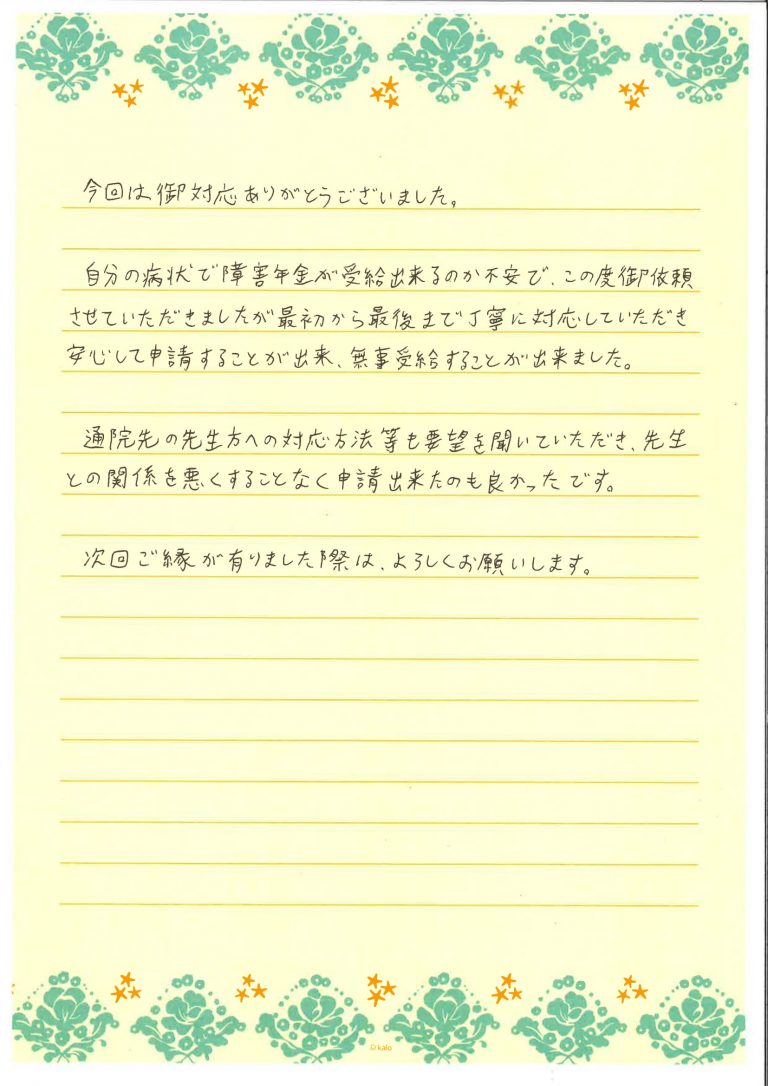 今回は御対応ありがとうございました。
自分の病状で障害年金が受給出来るのか不安で、この度御依頼
させていただきましたが最初から最後まで丁寧に対応していただき
安心して申請することが出来、無事受給することが出来ました。
通院先の先生方への対応方法等も要望を聞いていただき、先生
との関係を悪くすることなく申請出来たのも良かったです。
次回ご縁が有りました際は、よろしくお願いします。
kalo